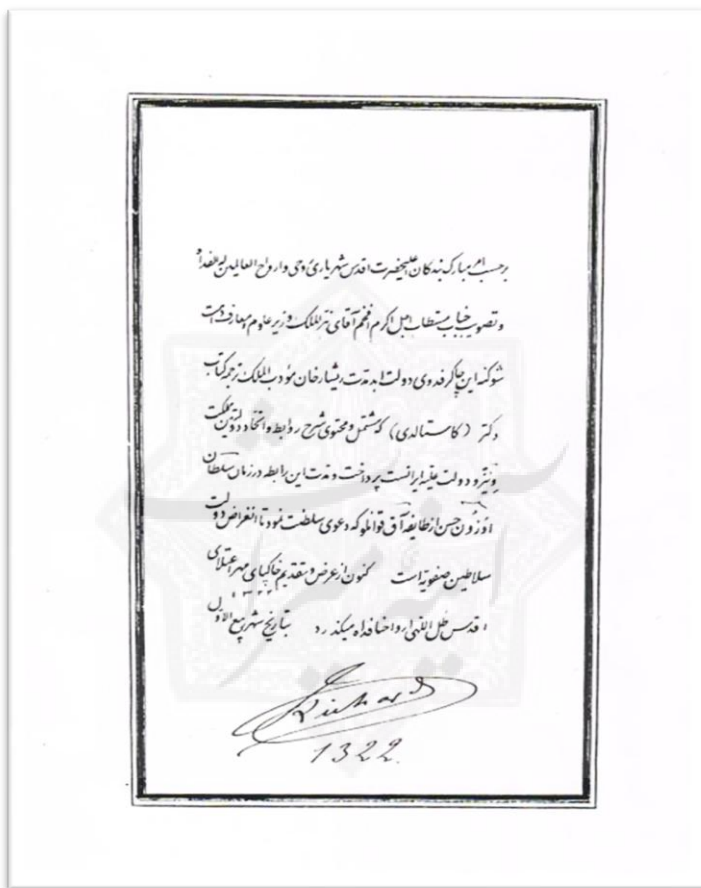 برحسب امر مبارک بندگان اعلیحضرت اقدس شهریاری روحی و ارواح العالمین له الفداه
و تصویب جناب مستطاب اجل اکرم افخم آقای نیرالملک وزیر علوم و معارف دامت
شوکته این چاکر فدوی دولت ابد مدت ریشارخان مؤدب الملک ترجمه کتاب
دکتر (کامستالدی) که مشتمل و محتوی شرح روابط و اتحاد دولتین مملکت
ونیز و دولت علیه ایرانست پرداخت و مدت این رابطه در زمان سلطان
اوزون حسن از طایفه آق قوانلو که دعوی سلطنت نمود تا انقراض دولت
سلاطین صفویه است کنون از عرض و تقدیم خاکپای مهر اعتلای
اقدس ظل اللهی ارواحنا فداه میگذرد بتاریخ شهر ربیع الاول ۱۳۲۲
Richard
1322.